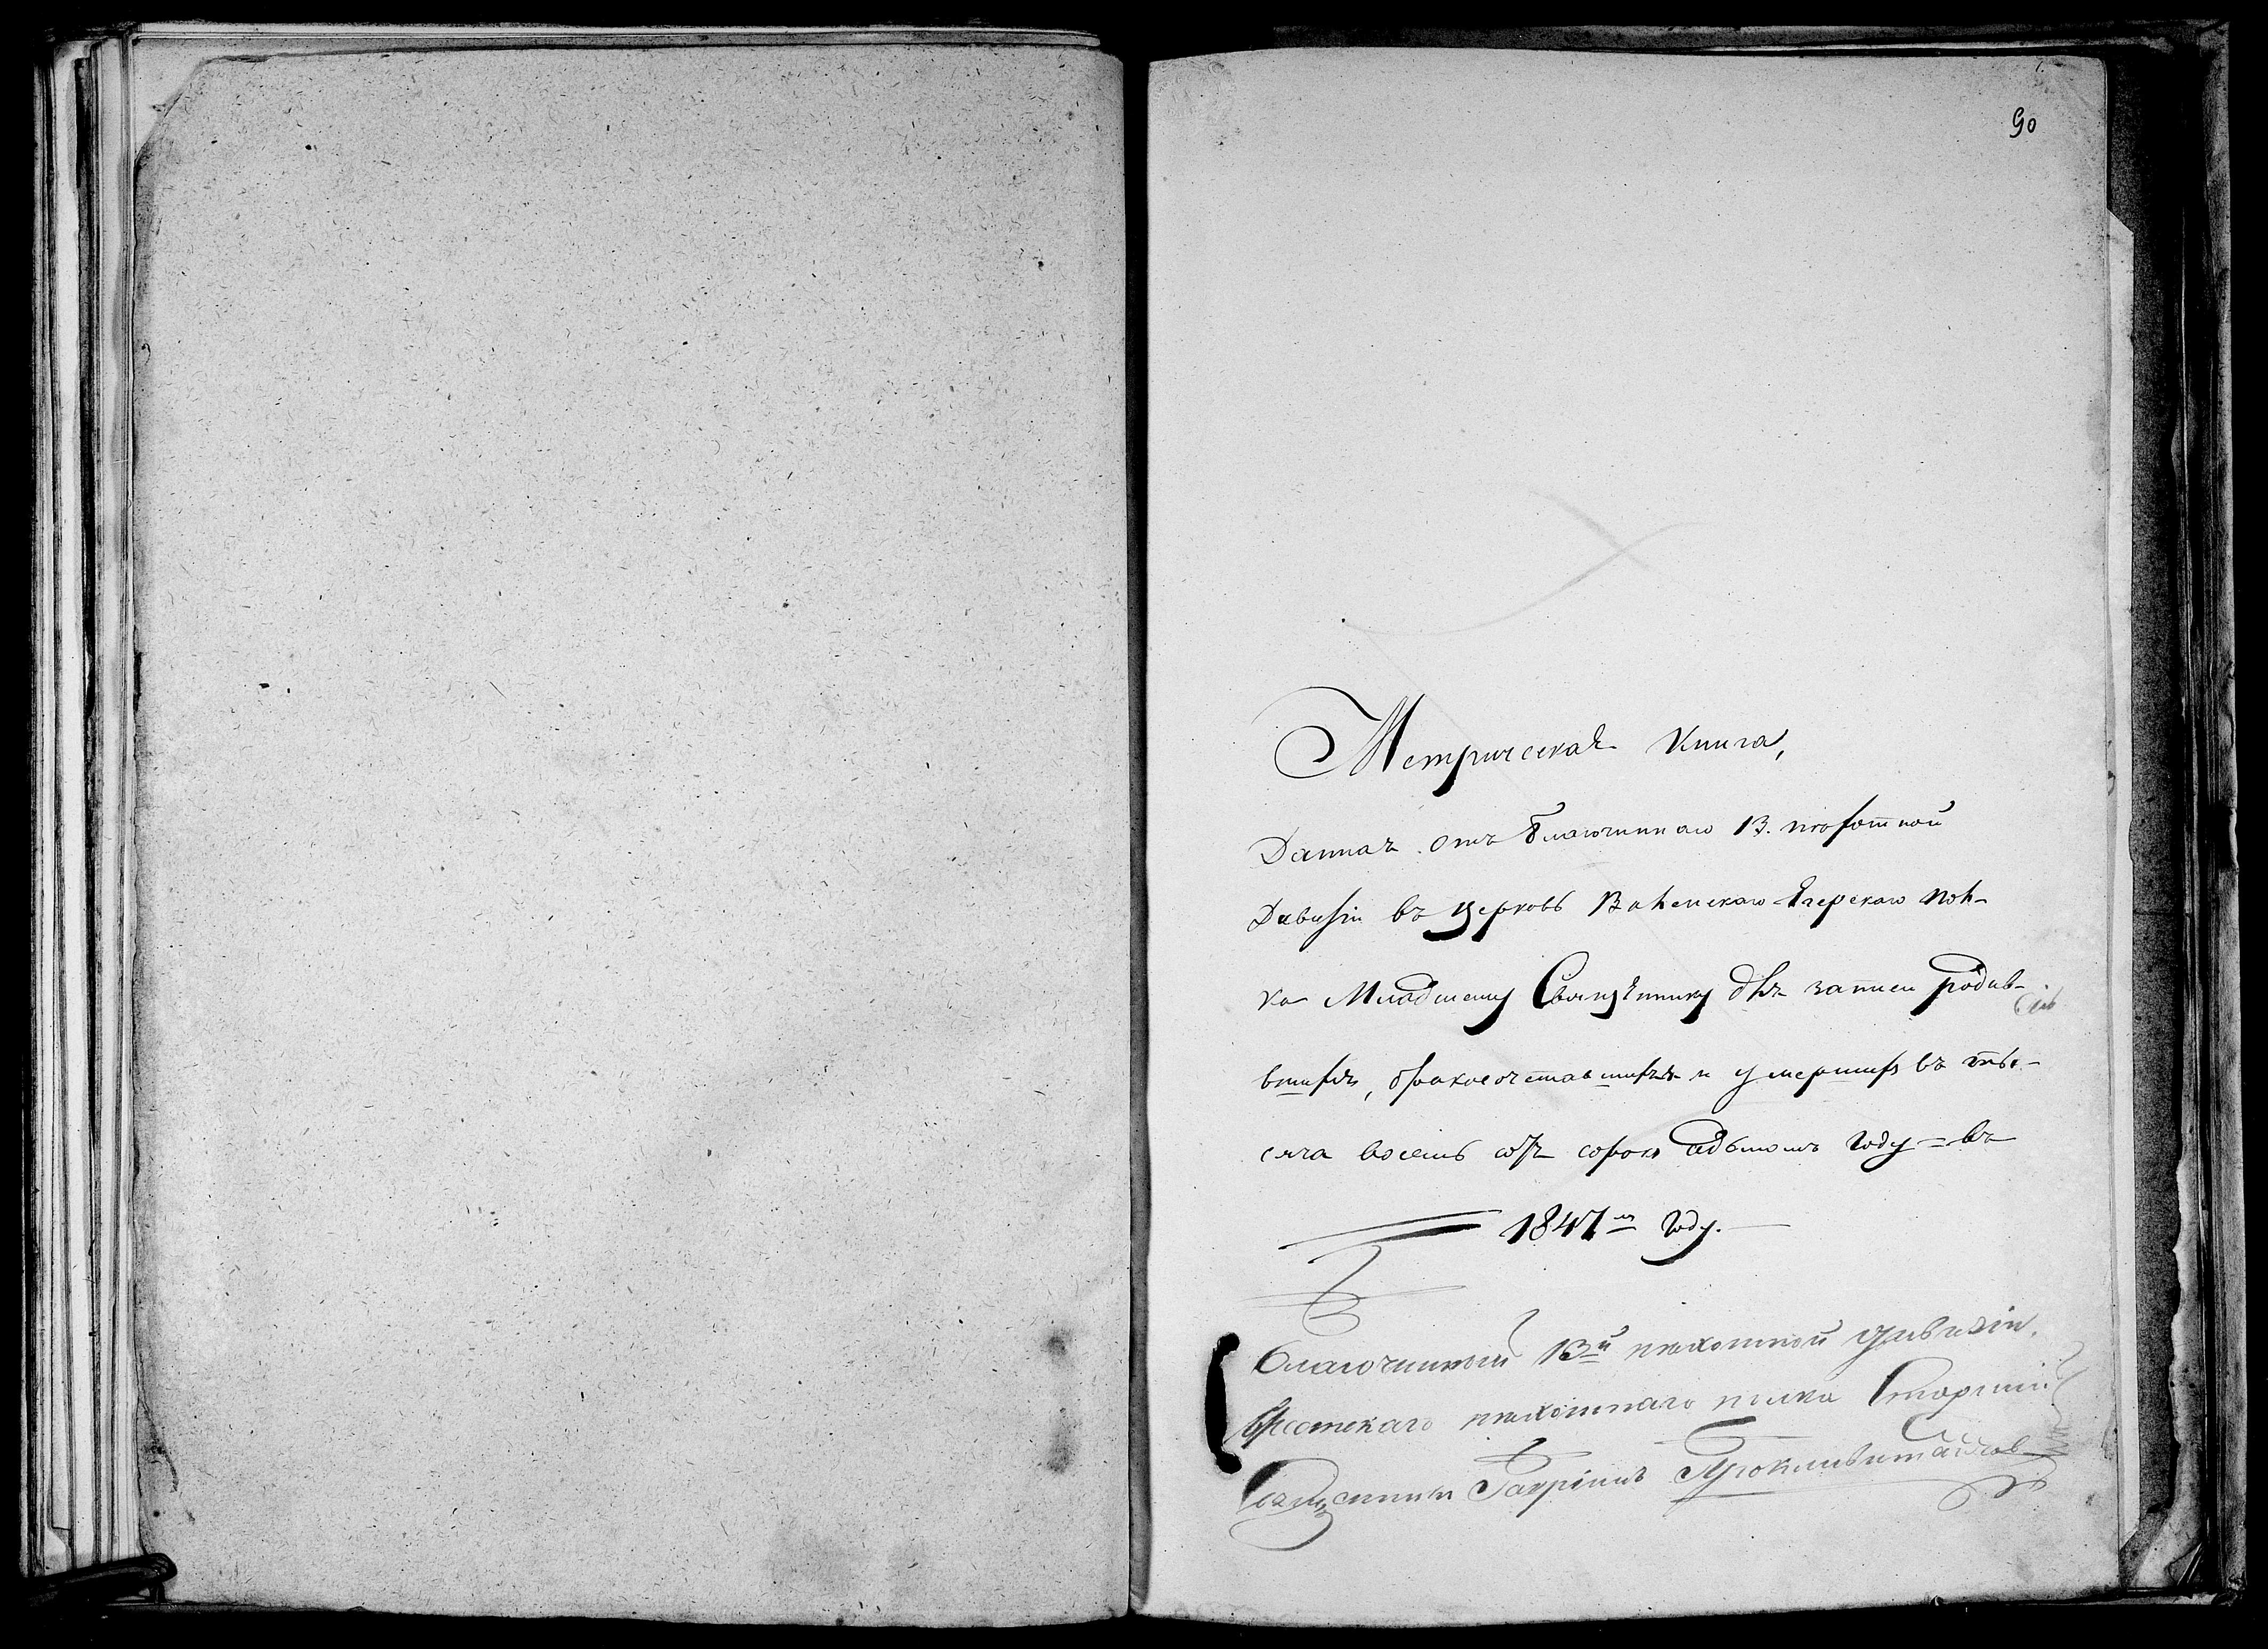 90
Метрическая книга,
Данная отъ Благочиннаго 13. пѣхотной
Дивизіи въ церковь Виленскаго Егерскаго пол-
ка Младшему Священнику для записи родив-
вшихъ, бракосочетавшихся и умершихъ въ ты-
сяча восемь сотъ сорокъ седьмомъ году = въ
1847м году.
Благочинный 13й пѣхотной дивизіи,
Брестскаго пѣхотнаго полка Старшій
Священникъ Гавріилъ